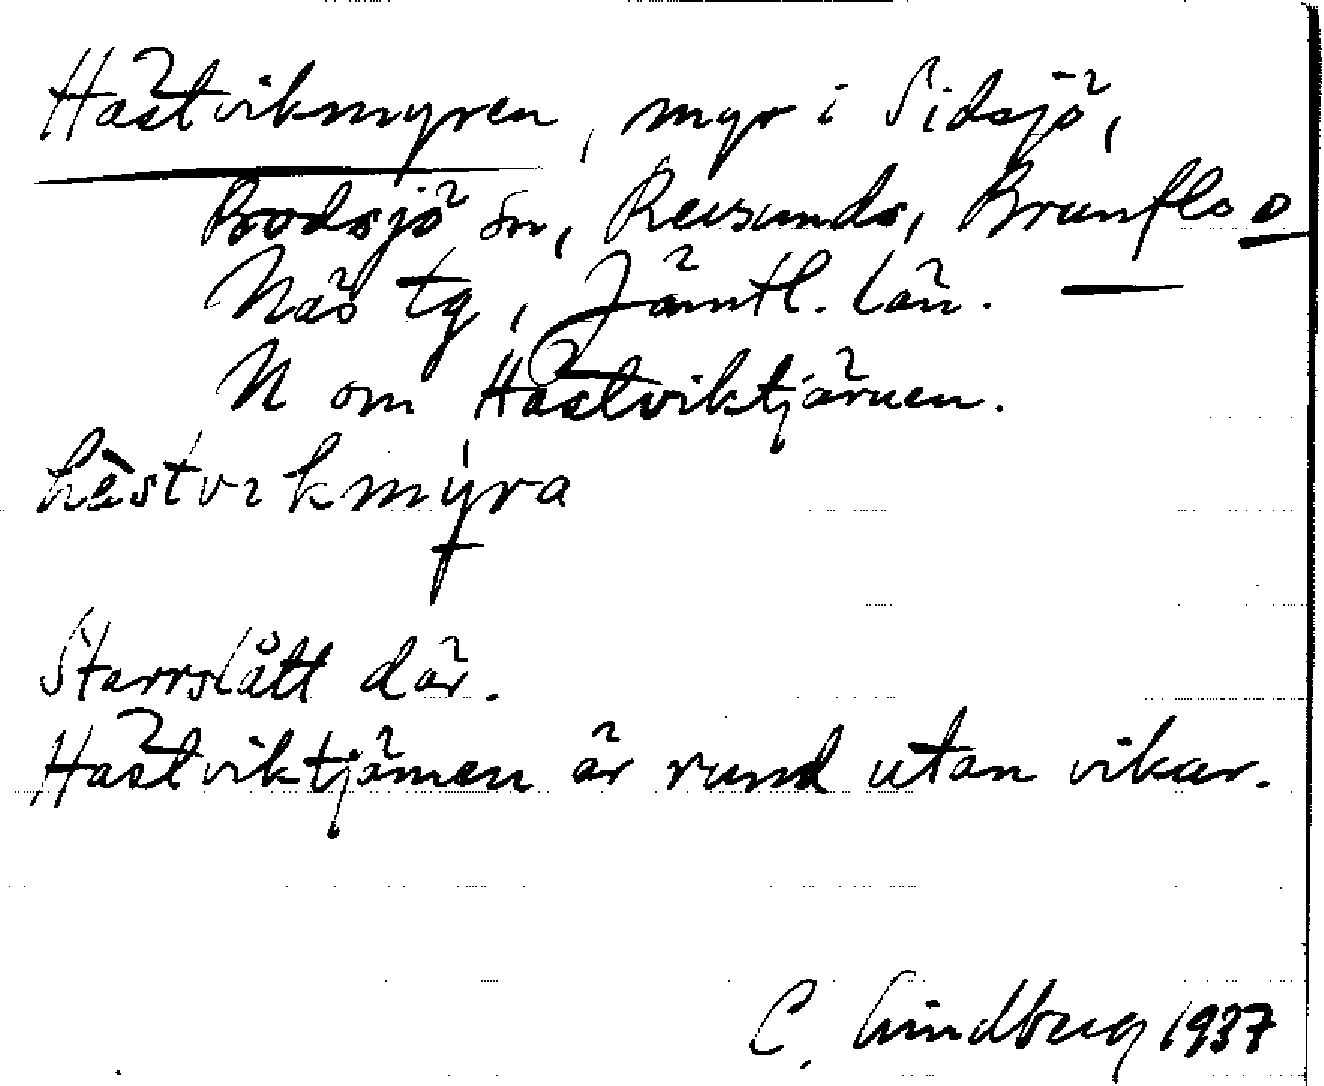 Hästvikmyren, myr i Sidsjö,
Bodsjö sn, Revsunds, Brunflo o
Näs tg, Jämtl. län. —
N om Hästviktjärnen.
hèstvɩkmýra
Starrslått där.
Hästviktjärnen är rund utan vikar.
C. Lindberg 1937